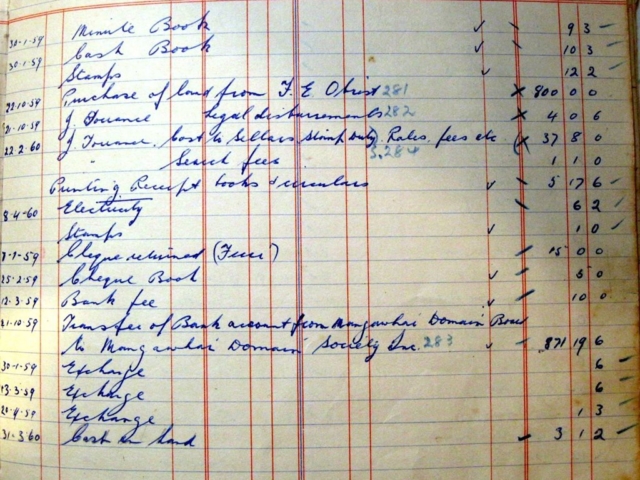 Minute Book ✓ 9 3 –
30-1-59 Cash Book ✓ 10 3 –
30-1-59 Stamps ✓ 12 2 –
22-10-59 Purchase of land from F. E. Obrist 281 × 800 00 0
21-10-59 J Dorrance Legal disbursements 282 × 4 0 6
22-2-60 J Dorrance, Cost to Sellars, Stamp Duty, Rates, fees etc × 37 8 0
" Search fees 3,284 1 1 0
Printing Receipt books & circulars ✓ 5 17 6 –
8-4-60 Electricity 6 2 –
Stamps ✓ 1 0 –
Cheque returned 15 0 0
25-2-59 Cheque Book ✓ 5 0
12-3-59 Bank fee ✓ 10 0
21-10-59 Transfer of Bank account from Mangawhai Domain Board
to Mangawhai Domain Society Inc. 283 ✓ 871 19 6
30-1-59 Exchange 6 –
13-3-59 Exchange 6 –
20-4-59 Exchange 1 3
31-3-60 Cash in hand 3 1 2 –